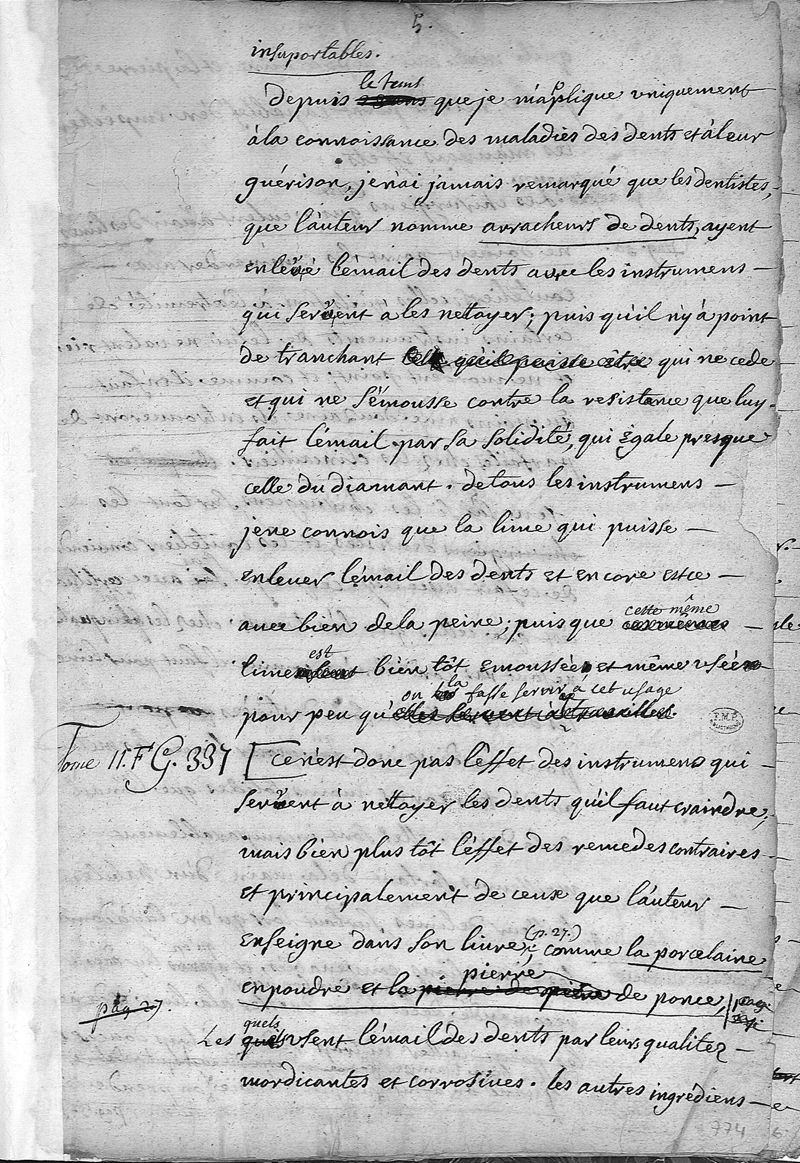 5.
insuportables.
le tems
Depuis que je m'aplique uniquement
à la connoissance des maladies des dents et à leur
guérison, je n'ai jamais remarqué que les dentistes,
que l'auteur nomme arracheurs de dents, ayent
enlevé l'émail des dents avec les instrumens —
qui servent a les nettoyer; puis qu'il n'y à point
de tranchant qu'il puisse etre qui ne cede
et qui ne s'émousse contre la resistance que luy-
fait l'émail par sa solidité, qui égale presque
celle du diamant. de tous les instrumens —
je ne connois que la lime qui puisse —
enlever l'émail des dents et encore est ce —
avec bien de la peine; puis que cette même
lime est bien tôt emoussée et même usée
on la fasse servir à cet usage
pour peu qu'
Tome II. F G. 337 [ce n'est donc pas l'effet des instrumens qui -
servent à nettoyer les dents qu'il faut craindre,
mais bien plus tôt l'éffet des remedes contraires -
et principalement de ceux que l'auteur —
enseigne dans son livre, (p. 27.) comme la porcelaine
en poudre et la pierre de ponce,
pag 27.
Les quels usent l'émail des dents par leurs qualitez —
mordicantes et corrosives. les autres ingrédiens —
774